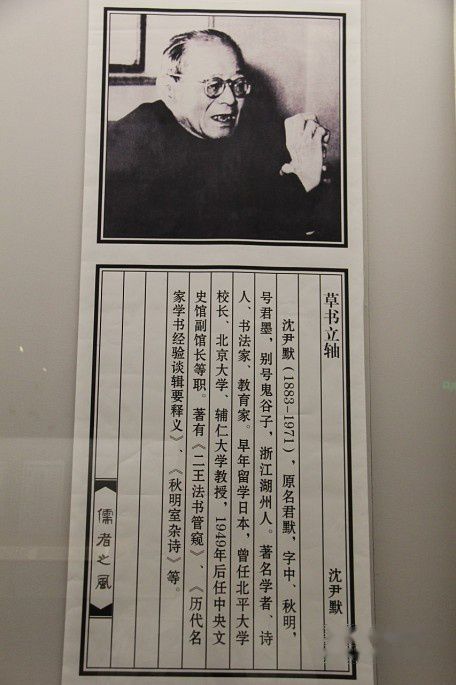 草书立轴
沈尹默
沈尹默(1883-1971),原名君默,字中、秋明,
号君墨,别号鬼谷子,浙江湖州人。著名学者、诗
人、书法家、教育家。早年留学日本,曾任北平大学
校长、北京大学、辅仁大学教授,1949年后任中央文
史馆副馆长等职。著有《二王法书管窥》、《历代名
家学书经验谈辑要释义》、《秋明室杂诗》等。
儒者之风